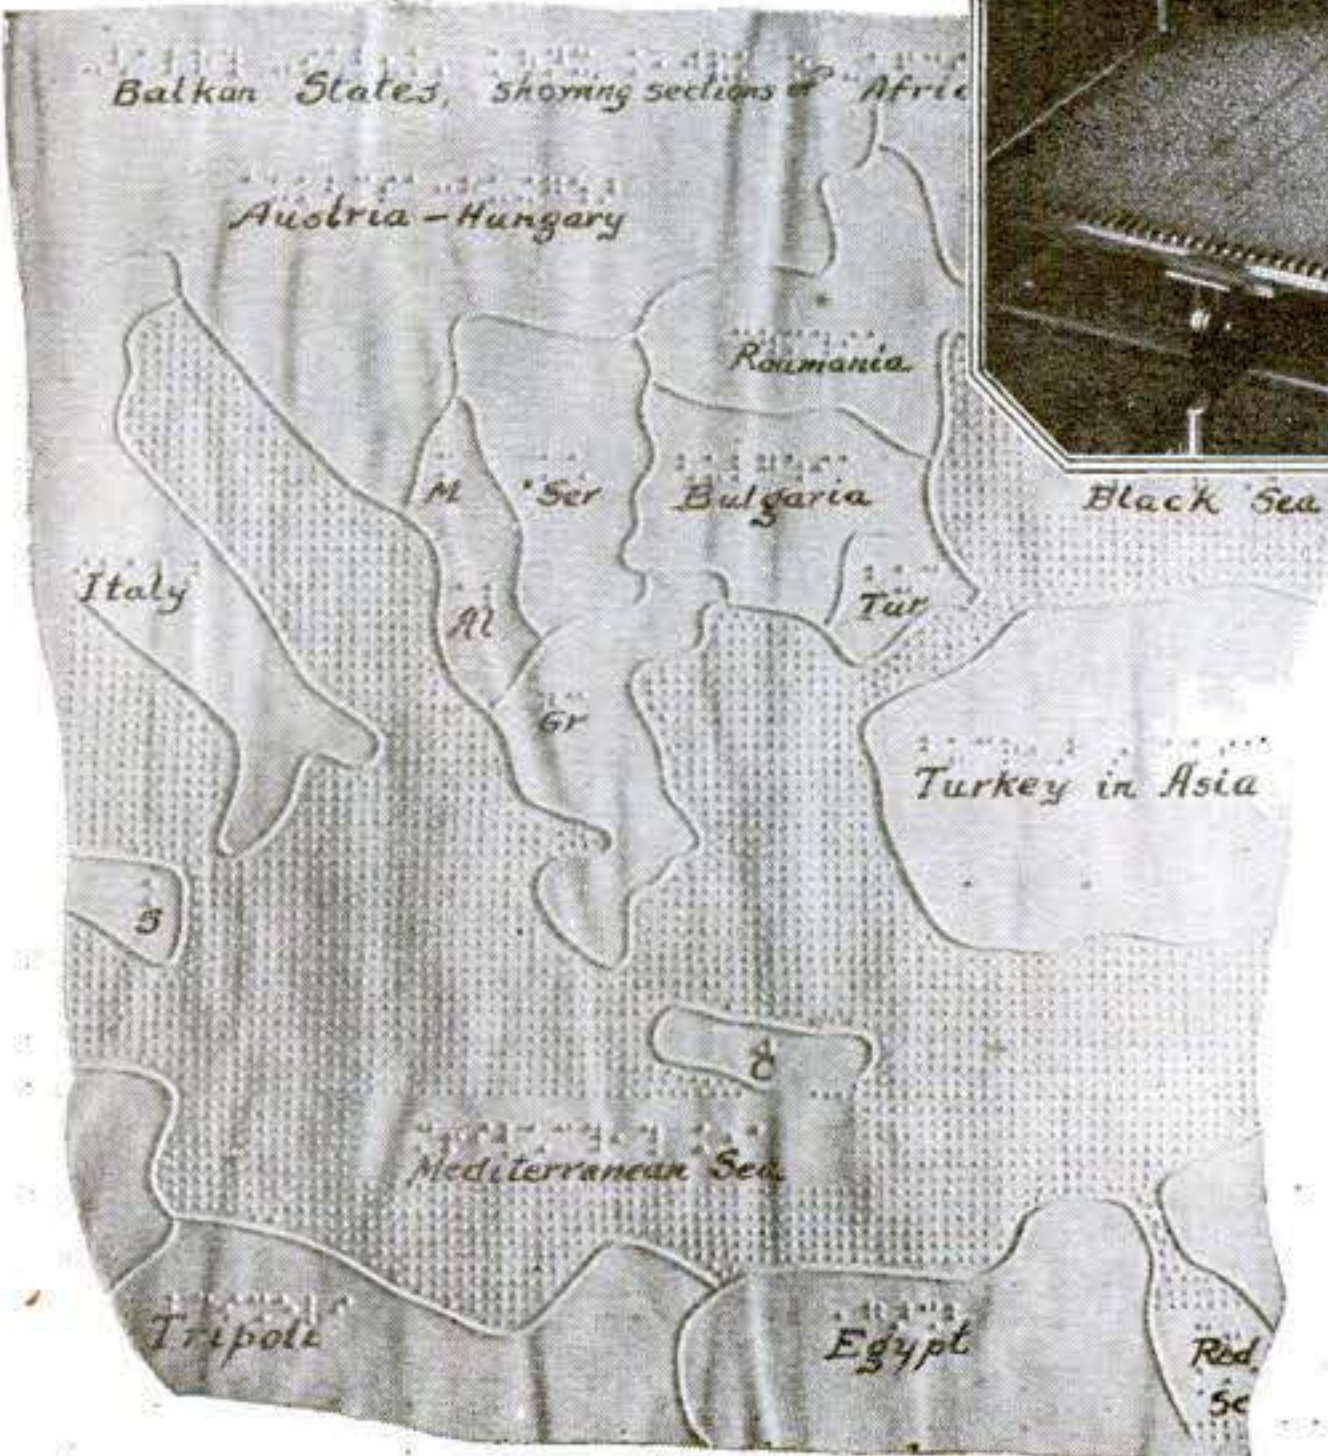 Balkan States, showing sections of Afric
Austria-Hungary
Roumania
M
Ser
Bulgaria
Black Sea
Italy
Al
Tur
Gr
Turkey in Asia
S
C
Mediterranean Sea
Tripoli
Egypt
Red
Se